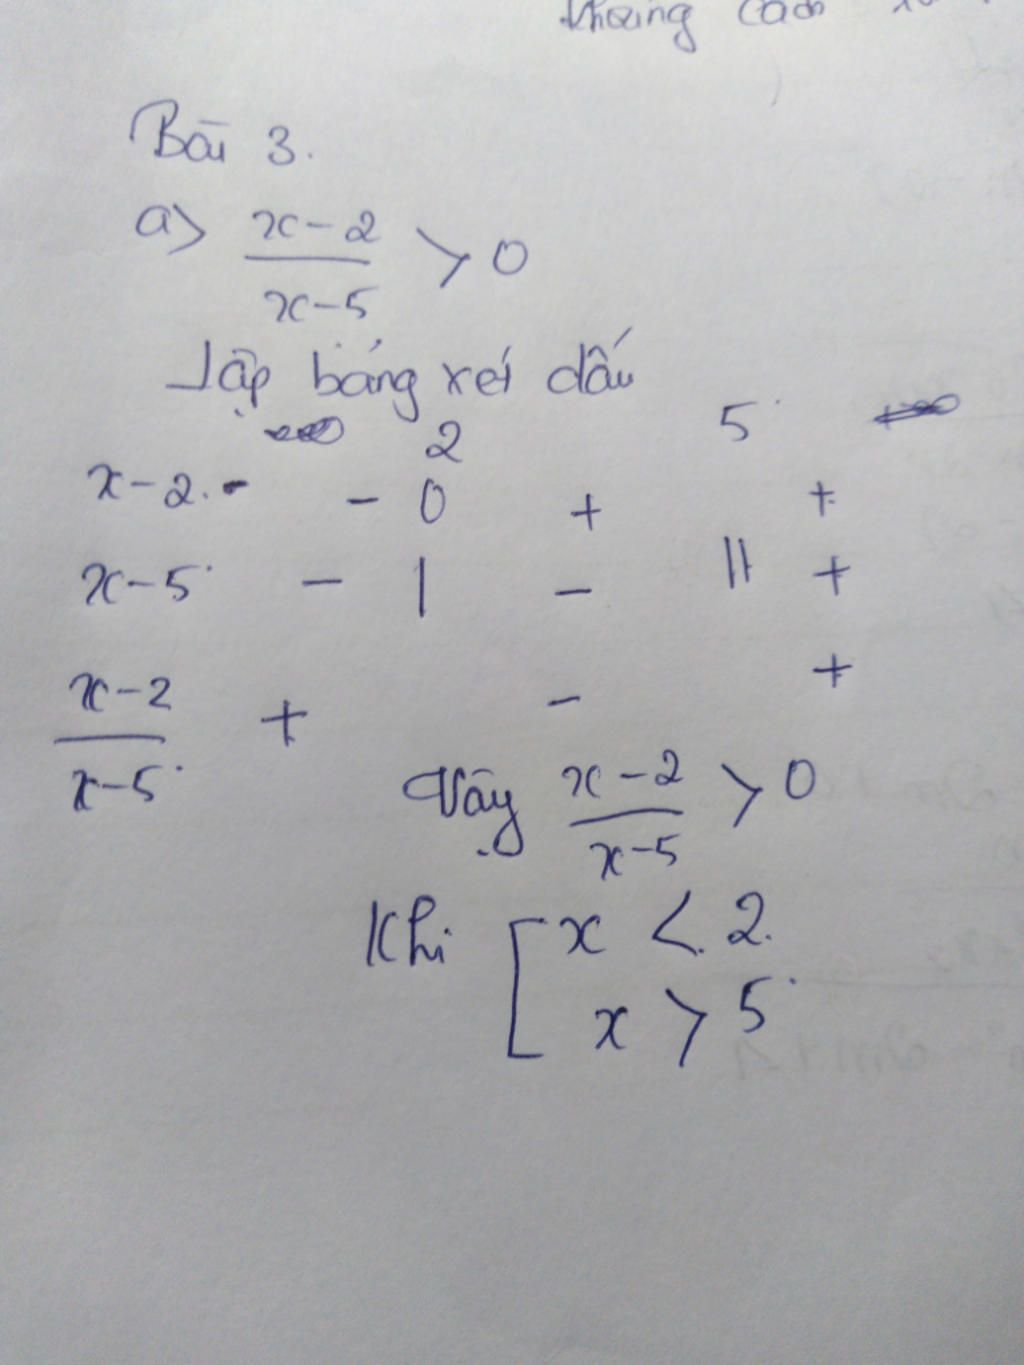 Khoảng cách
Bài 3.
a> x-2 / x-5 > 0
Lập bảng xét dấu
2 5
x-2 - 0 + +
x-5 - | - || +
x-2 / x-5 + - +
Vậy x-2 / x-5 > 0
Khi [ x < 2
x > 5